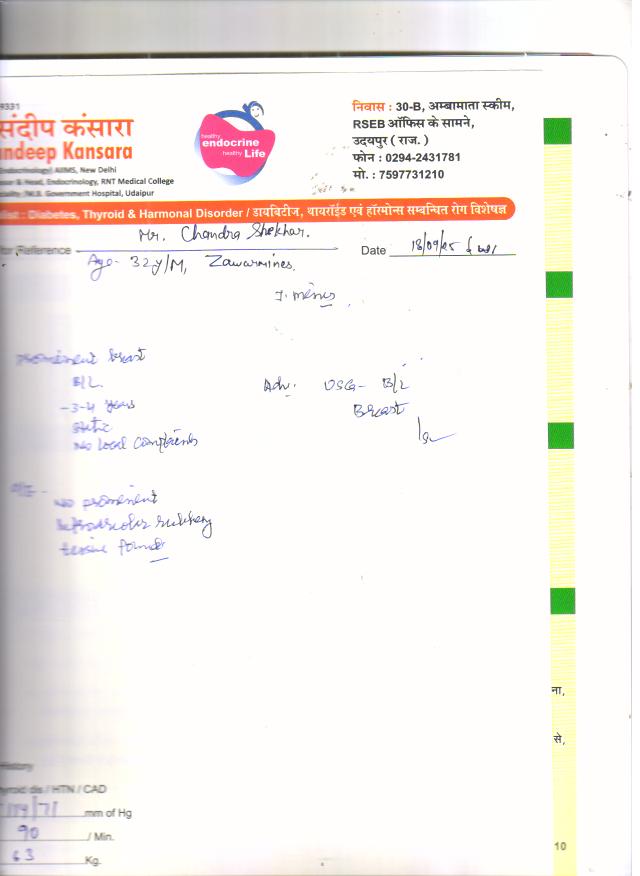 9331
संदीप कंसारा
ndeep Kansara
Endocrinology) AIIMS, New Delhi
& Head, Endocrinology, RNT Medical College
M.B. Government Hospital, Udaipur
healthy
endocrine
healthy Life
निवास : 30-B, अम्बामाता स्कीम,
RSEB ऑफिस के सामने,
उदयपुर ( राज. )
फोन : 0294-2431781
मो. : 7597731210
list : Diabetes, Thyroid & Harmonal Disorder / डायबिटीज, थायरॉईड एवं हॉरमोन्स सम्बन्धित रोग विशेषज्ञ
Mr. Chandra Shekhar.
for Reference
Date 18/09/25
Age - 32 y/M, Zawarmines.
prominent breast
B/L
- 3-4 years
static
No local complaints
Adv: USG - B/L
Breast
O/E -
No prominent
rubbery
tissue found
ना,
से,
History
hyroid dis / HTN / CAD
114/71 mm of Hg
90 / Min.
63 Kg.
10